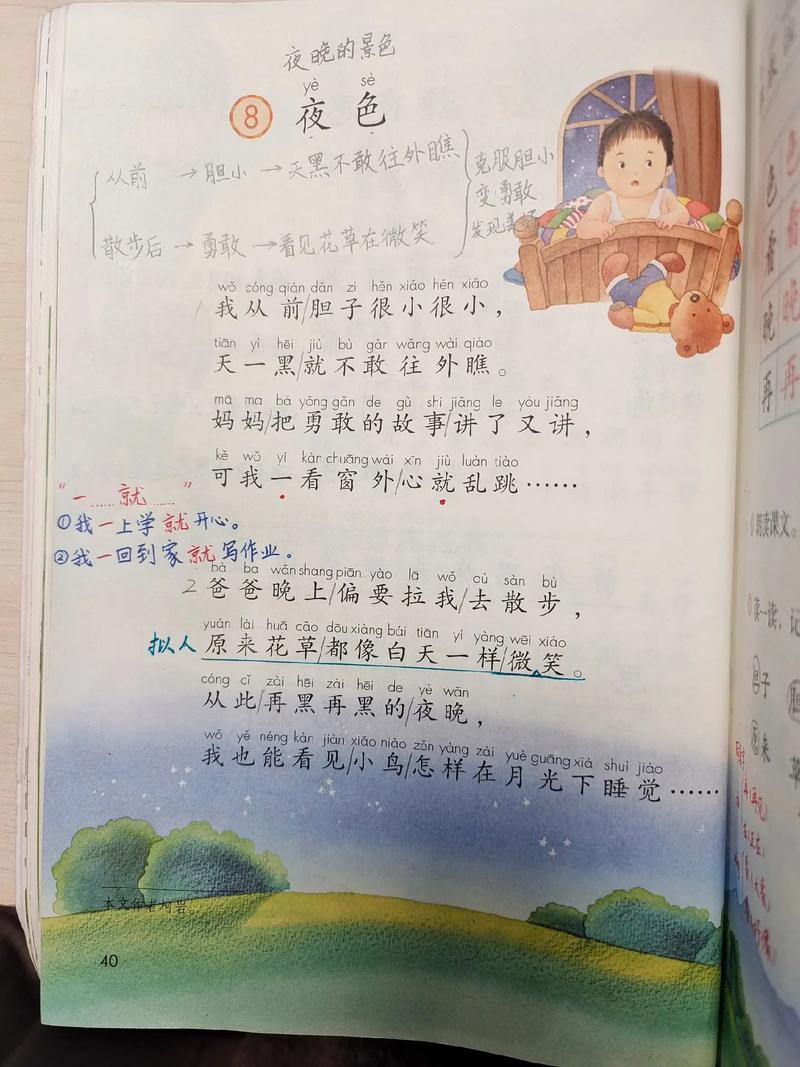 夜晚的景色
yè sè
8 夜色
从前 → 胆小 → 天黑不敢往外瞧
散步后 → 勇敢 → 看见花草在微笑
克服胆小
变勇敢
发现美
wǒ cóng qián dǎn zi hěn xiǎo hěn xiǎo
1 我从前/胆子很小很小，
tiān yì hēi jiù bù gǎn wǎng wài qiáo
天一黑/就不敢往外瞧。
mā ma bǎ yǒng gǎn de gù shi jiǎng le yòu jiǎng
妈妈/把勇敢的故事/讲了又讲，
kě wǒ yí kàn chuāng wài xīn jiù luàn tiào
可我一看窗外/心就乱跳……
“一……就……”
①我一上学就开心。
②我一回到家就写作业。
bà ba wǎn shang piān yào lā wǒ qù sàn bù
2 爸爸晚上/偏要拉我/去散步，
yuán lái huā cǎo dōu xiàng bái tiān yí yàng wēi xiào
拟人 原来花草/都像白天一样/微笑。
cóng cǐ zài hēi zài hēi de yè wǎn
从此/再黑再黑的/夜晚，
wǒ yě néng kàn jiàn xiǎo niǎo zěn yàng zài yuè guāng xià shuì jiào
我也能看见/小鸟/怎样在月光下睡觉……
本文作者
40
色
看
晚
再
色
看
晚
再
朗读课文。
读一读，记
胆子
来